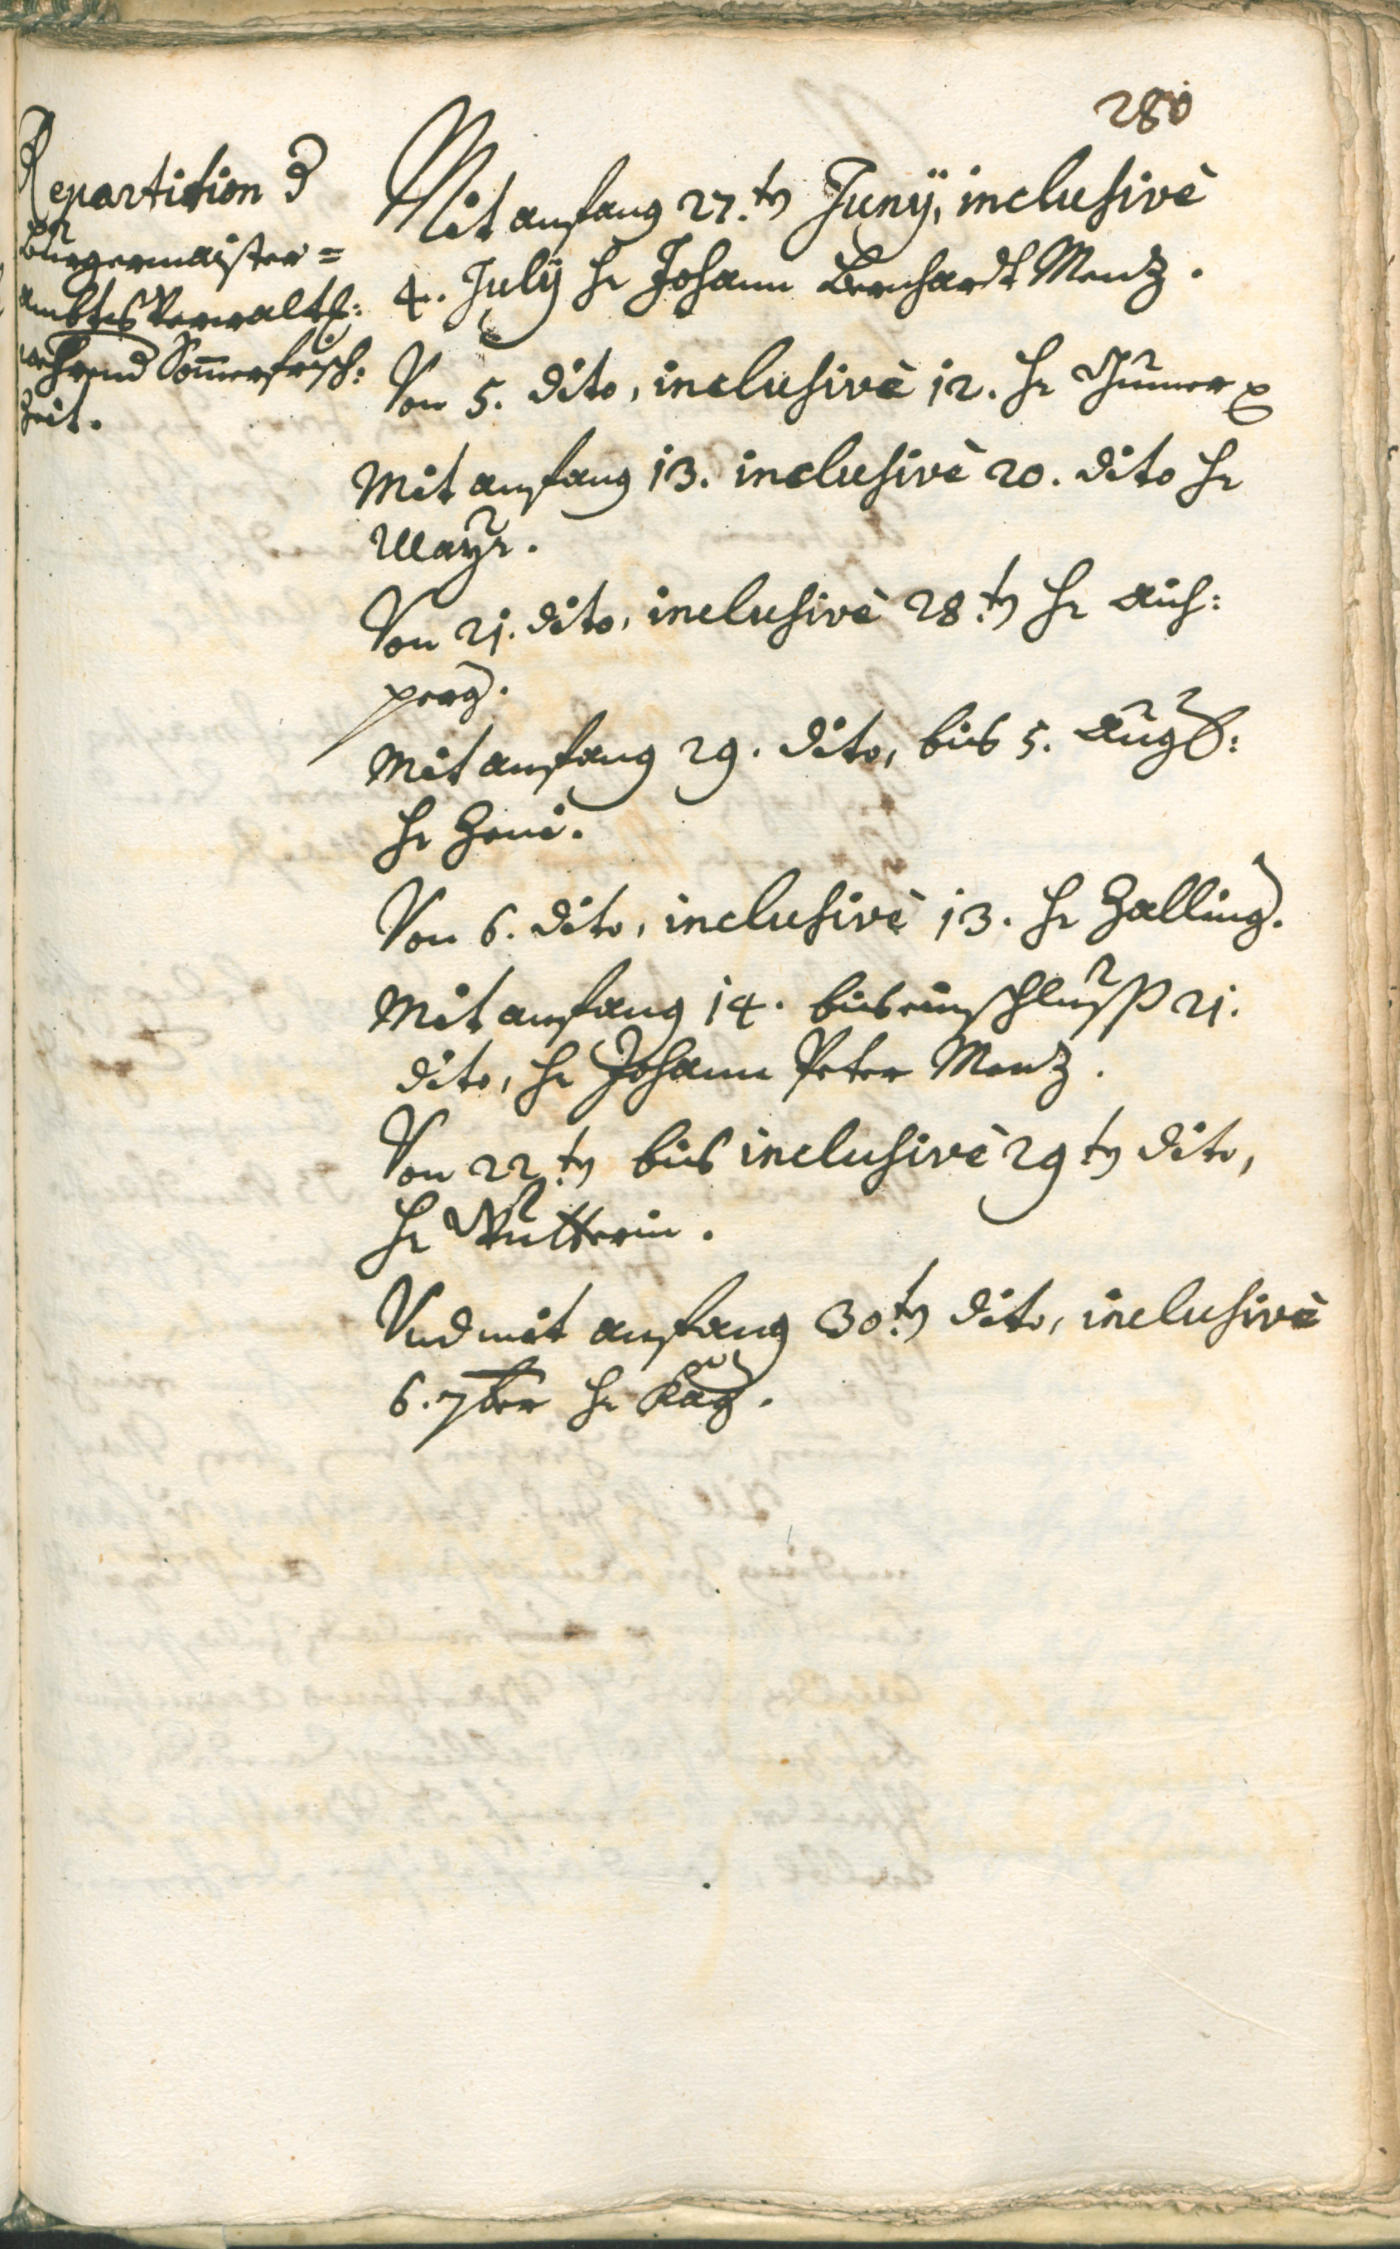 280
Repartition d
Burgermaister=
ambts Verwalt:
wehrend Som̅erfrisch:
Zeit.
Mit anfang 27.tn Junÿ, inclusivè
4. Julÿ Hr Johann Bernhardt Mentz.
Von 5. dito, inclusivè 12. Hr
Mit anfang 13. inclusivè 20. dito Hr
Mayr.
Von 21. dito, inclusivè 28.tn Hr Aich:
perg.
Mit anfang 29. dito, bis 5. Aug:
Hr Zeni.
Von 6. dito, inclusivè 13. Hr Zalling.
Mit anfang 14. bis einschluss 21.
dito, Hr Johann Peter Mentz.
Von 22.tn bis inclusivè 29tn dito,
Hr
Vnd mit anfang 30.tn dito, inclusivè
6. 7ber Hr